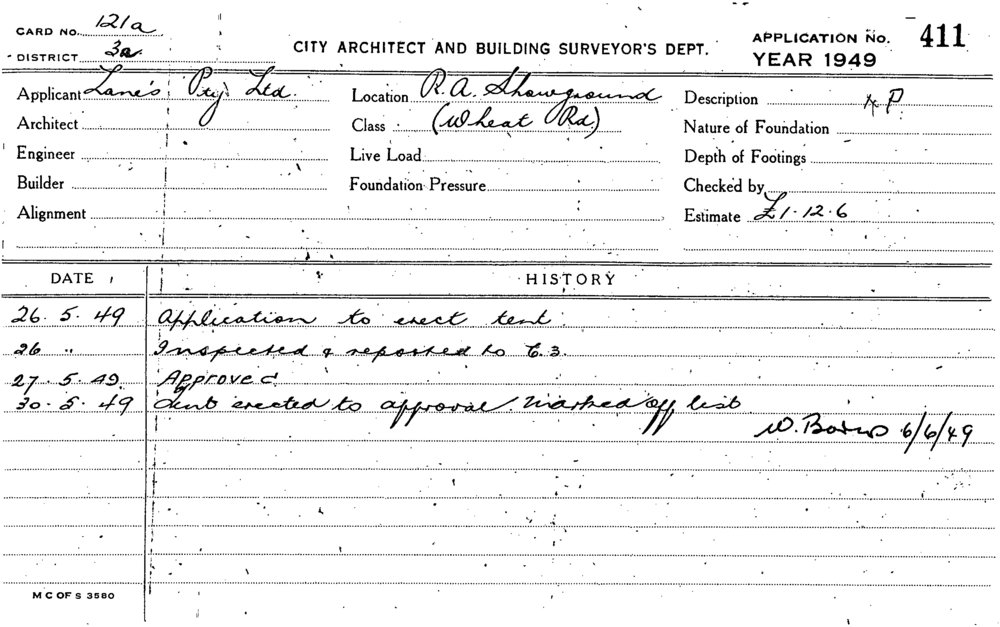 CARD NO. 121a
DISTRICT 3a
CITY ARCHITECT AND BUILDING SURVEYOR'S DEPT.
APPLICATION NO. 411
YEAR 1949
Applicant Lane's Pty Ltd.
Architect
Engineer
Builder
Alignment
Location R.A. Showground
Class (Wheat Rd)
Live Load
Foundation Pressure
Description P
Nature of Foundation
Depth of Footings
Checked by
Estimate £1.12.6
DATE HISTORY
26. 5. 49 Application to erect tent.
26 " Inspected & reported to C.3.
27. 5. 49. Approved
30. 5. 49 Tent erected to approval. Marked off list
W. 6/6/49
M C OF S 3580